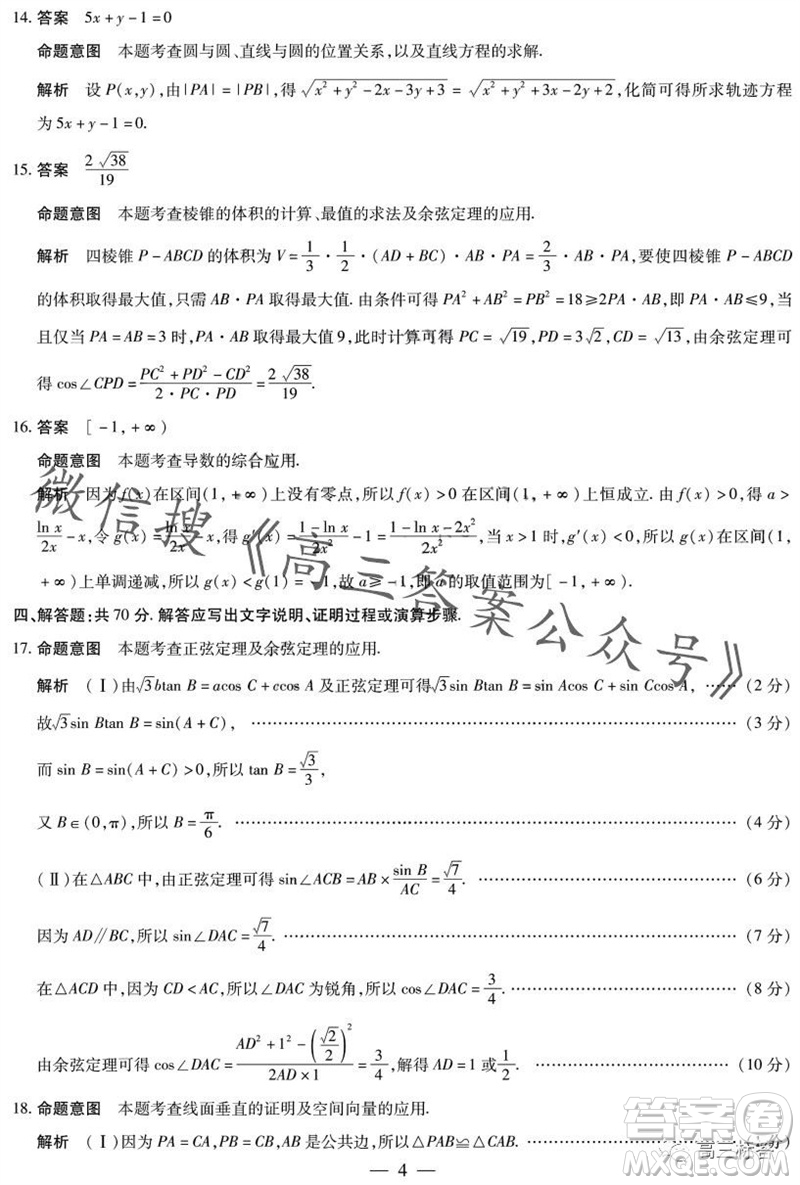 14. 答案 5x+y-1=0
命题意图 本题考查圆与圆、直线与圆的位置关系,以及直线方程的求解.
解析 设 P(x,y),由|PA|=|PB|,得 √(x²+y²-2x-3y+3) = √(x²+y²+3x-2y+2),化简可得所求轨迹方程
为 5x+y-1=0.
15. 答案 2√38/19
命题意图 本题考查棱锥的体积的计算、最值的求法及余弦定理的应用.
解析 四棱锥 P-ABCD 的体积为 V=1/3·1/2·(AD+BC)·AB·PA=2/3·AB·PA,要使四棱锥 P-ABCD
的体积取得最大值,只需 AB·PA 取得最大值.由条件可得 PA²+AB²=PB²=18≥2PA·AB,即 PA·AB≤9,当
且仅当 PA=AB=3 时,PA·AB 取得最大值 9,此时计算可得 PC=√19,PD=3√2,CD=√13,由余弦定理可
得 cos∠CPD=(PC²+PD²-CD²)/(2·PC·PD)=2√38/19.
16. 答案 [-1,+∞)
命题意图 本题考查导数的综合应用.
解析 因为 f(x)在区间(1,+∞)上没有零点,所以 f(x)>0 在区间(1,+∞)上恒成立.由 f(x)>0,得 a>
ln x/2x-x,令 g(x)=ln x/2x-x,得 g′(x)=(1-ln x)/2x²-1=(1-ln x-2x²)/2x².当 x>1 时,g′(x)<0,所以 g(x)在区间(1,
+∞)上单调递减,所以 g(x)<g(1)=-1,故 a≥-1,即 a 的取值范围为[-1,+∞).
四、解答题:共 70 分.解答应写出文字说明、证明过程或演算步骤.
17. 命题意图 本题考查正弦定理及余弦定理的应用.
解析 (Ⅰ)由√3btan B=acos C+ccos A 及正弦定理可得√3sin Btan B=sin Acos C+sin Ccos A, …… (2 分)
故√3sin Btan B=sin(A+C), …… (3 分)
而 sin B=sin(A+C)>0,所以 tan B=√3/3,
又 B∈(0,π),所以 B=π/6. …… (4 分)
(Ⅱ)在△ABC 中,由正弦定理可得 sin∠ACB=AB×sin B/AC=√7/4. …… (6 分)
因为 AD∥BC,所以 sin∠DAC=√7/4. …… (7 分)
在△ACD 中,因为 CD<AC,所以∠DAC 为锐角,所以 cos∠DAC=3/4. …… (8 分)
由余弦定理可得 cos∠DAC=(AD²+1²-(√2/2)²)/(2AD×1)=3/4,解得 AD=1 或1/2. …… (10 分)
18. 命题意图 本题考查线面垂直的证明及空间向量的应用.
解析 (Ⅰ)因为 PA=CA,PB=CB,AB 是公共边,所以△PAB≌△CAB. ……
— 4 —
微信搜《高三答案公众号》
答案圈
MXQE.COM